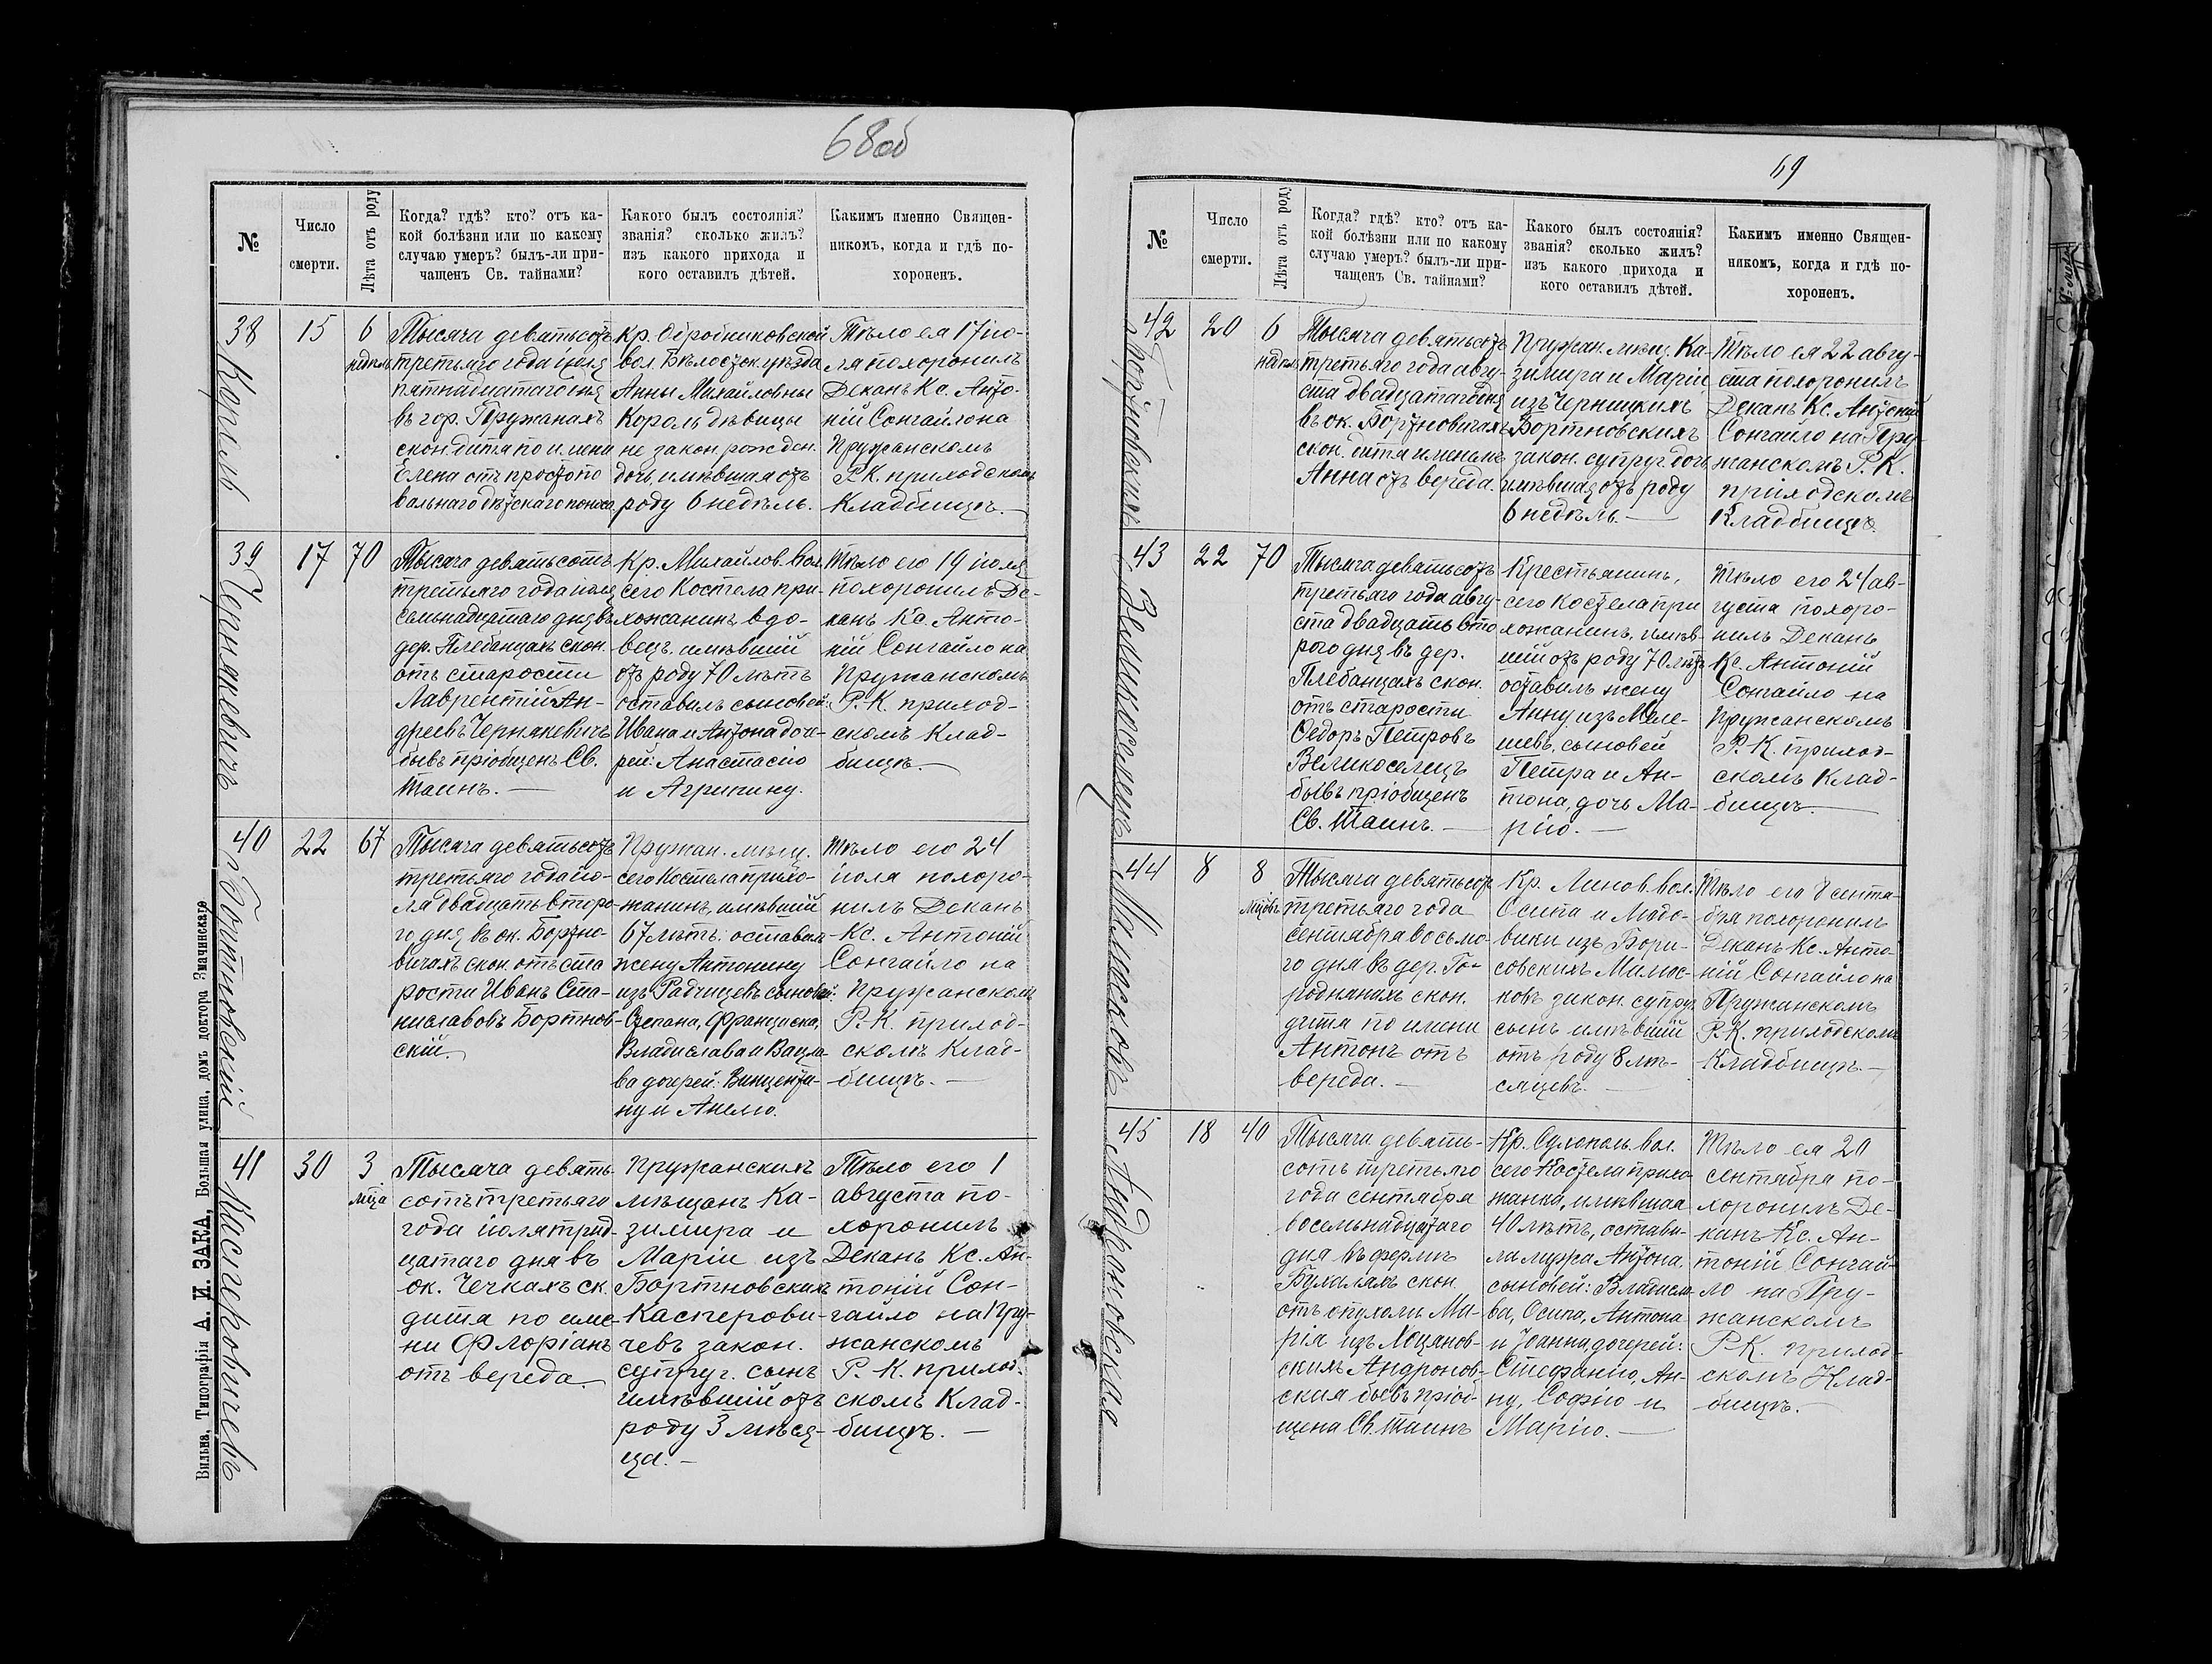 68об
№
Число
смерти.
Лѣта отъ роду
Когда? гдѣ? кто? отъ ка-
кой болѣзни или по какому
случаю умеръ? былъ-ли при-
чащенъ Св. тайнами?
Какого былъ состоянія?
званія? сколько жилъ?
изъ какого прихода и
кого оставилъ дѣтей.
Какимъ именно Священ-
никомъ, когда и гдѣ по-
хороненъ.
38
Король
15
6
недѣль
Тысяча девятьсотъ
третьяго года іюля
пятнадцатаго дня
въ гор. Пружанахъ
скон. дитя по имени
Елена отъ простого
вальнаго дѣтскаго поноса
Кр. вол. Бѣлосток. уѣзда
Анны Михайловны
Король дѣвицы
не закон. рожден.
дочь, имѣвшая отъ
роду 6 недѣль.
Тѣло ея 17 ію-
ля похоронилъ
Деканъ Кс. Анто-
ній Сонгайло на
Пружанскомъ
Р.К. приходскомъ
Кладбищѣ.
39
Чернякевичъ
17
70
Тысяча девятьсотъ
третьяго года іюля
семнадцатаго дня въ
дер. Плебанцахъ скон.
отъ старости
Лаврентій Ан-
дреевъ Чернякевичъ
бывъ пріобщенъ Св.
Таинъ.
Кр. Михайлов. вол.
сего Костела при-
хожанинъ вдо-
вецъ. имѣвшій
отъ роду 70 лѣтъ
оставилъ сыновей:
Ивана и Антона доч-
рей: Анастасію
и Агрипину.
Тѣло его 19 іюля
похоронилъ Де-
канъ Кс. Анто-
ній Сонгайло на
Пружанскомъ
Р.К. приход-
скомъ Клад-
бищѣ.
40
Бортновскій
22
67
Тысяча девятьсотъ
третьяго года ію-
ля двадцать второ-
го дня въ ок. Бортно-
вичахъ скон. отъ ста
рости Иванъ Ста-
ниславовъ Бортнов-
скій.
Пружан. мѣщ.
сего Костела прихо-
жанинъ, имѣвшій
67 лѣтъ: оставилъ
жену Антонину
изъ Радчицевъ сыновей:
Степана, Франциска,
Владислава и Вацла-
ва дочерей: Винценти-
ну и Анелю.
Тѣло его 24
іюля похоро-
нилъ Деканъ
Кс. Антоній
Сонгайло на
Пружанскомъ
Р.К. приход-
скомъ Клад-
бищѣ.
41
Касперовичевъ
30
3
мца
Тысяча девять
сотъ третьяго
года іюля трид-
цатаго дня въ
ок. Чечкахъ ск.
дитя по име-
ни Флоріанъ
отъ вереда.
Пружанскихъ
мѣщанъ Ка-
зимира и
Маріи изъ
Бортновскихъ
Касперови-
чевъ закон.
супруг. сынъ
имѣвшій отъ
роду 3 мѣся-
ца.
Тѣло его 1
августа по-
хоронилъ
Деканъ Кс. Ан-
тоній Сон-
гайло на Пру-
жанскомъ
Р.К. приход-
скомъ Клад-
бищѣ.
Вильна, Типографія А. И. ЗАКА, Большая улица, домъ доктора Змачинскаго
69
№
Число
смерти.
Лѣта отъ роду
Когда? гдѣ? кто? отъ ка-
кой болѣзни или по какому
случаю умеръ? былъ-ли при-
чащенъ Св. тайнами?
Какого былъ состоянія?
званія? сколько жилъ?
изъ какого прихода и
кого оставилъ дѣтей.
Какимъ именно Священ-
никомъ, когда и гдѣ по-
хороненъ.
42
Бортновскихъ
20
6
недѣль
Тысяча девятьсотъ
третьяго года авгу-
ста двадцатаго дня
въ ок. Бортновичахъ
скон. дитя именемъ
Анна отъ вереда.
Пружан. мѣщ. Ка-
зимира и Маріи
изъ Черницкихъ
Бортновскихъ
закон. супруг. дочь
имѣвшая отъ роду
6 недѣль.
Тѣло ея 22 авгу-
ста похоронилъ
Деканъ Кс. Антоній
Сонгайло на Пру-
жанскомъ Р.К.
приходскомъ
Кладбищѣ.
43
Великоселецъ
22
70
Тысяча девятьсотъ
третьяго года авгу-
ста двадцать вто
рого дня въ дер.
Плебанцахъ скон.
отъ старости
Ѳедоръ Петровъ
Великоселецъ
бывъ пріобщенъ
Св. Таинъ.
Крестьянинъ,
сего костела при
хожанинъ, имѣв-
шій отъ роду 70 лѣтъ
оставилъ жену
Анну изъ Меле-
шевъ, сыновей
Петра и Ан-
тона, дочь Ма-
рію.
Тѣло его 24 ав-
густа похоро-
нилъ Деканъ
Кс. Антоній
Сонгайло на
Пружанскомъ
Р.К. приход-
скомъ Клад-
бищѣ.
44
8
8
мцовъ
Тысяча девятьсотъ
третьяго года
сентября восьмо-
го дня въ дер. Го-
роднянахъ скон.
дитя по имени
Антонъ отъ
вереда.
Кр. Линов. вол.
Осипа и Людо-
вики изъ Бори-
совскихъ
закон. супруг.
сынъ имѣвшій
отъ роду 8 мѣ-
сяцевъ.
Тѣло его 8 сентя-
бря похоронилъ
Деканъ Кс. Анто-
ній Сонгайло на
Пружанскомъ
Р.К. приходскомъ
Кладбищѣ.
45
Андроновская
18
40
Тысяча девять-
сотъ третьяго
года сентября
восемьнадцатаго
дня въ фермѣ
скон.
отъ опухоли Ма-
рія изъ
скихъ Андронов-
ская бывъ пріоб-
щена Св. Таинъ
Кр. Сухополь. вол.
сего Костела прихо
жанка, имѣвшая
40 лѣтъ, остави-
ла мужа Антона,
сыновей: Владисла-
ва, Осипа, Антона
и Іоанна, дочерей:
Стефанію, Ан-
ну, Софію и
Марію.
Тѣло ея 20
сентября по-
хоронилъ Де-
канъ Кс. Ан-
тоній Сонгай-
ло на Пру-
жанскомъ
Р.К. приход-
скомъ Клад-
бищѣ.